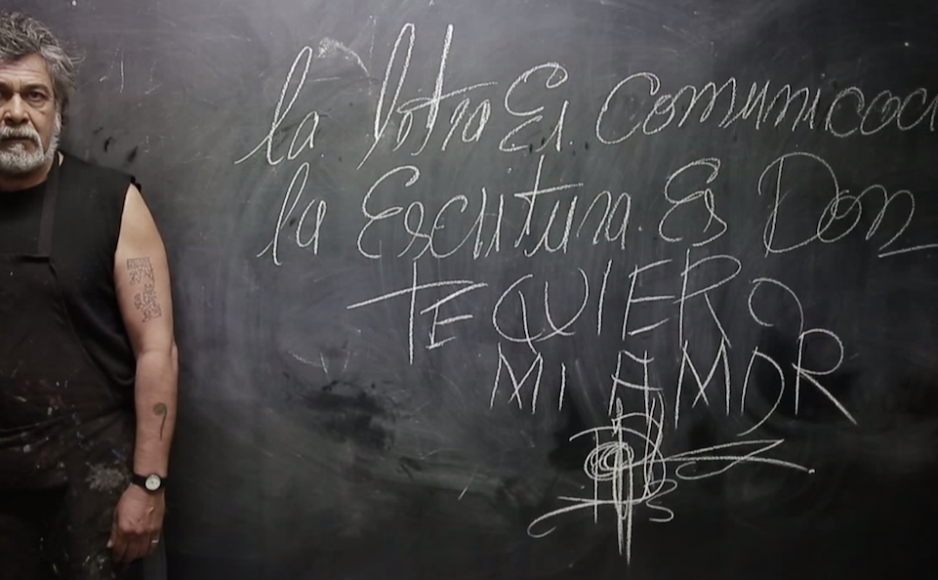 la letra Es. Comunicaci
la Escritura. Es Don
TE QUIERO
MI AMOR